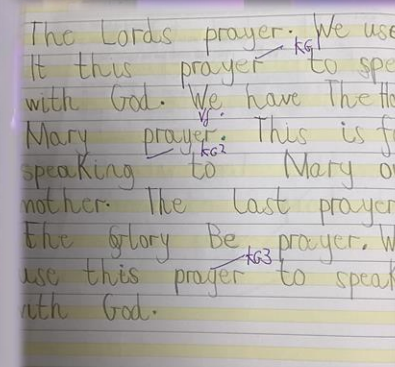 The Lords prayer. We use
It this prayer to spe
KG1
with God. We have The Ho
VS.
Mary prayer. This is fo
KG2
speaking to Mary o
mother. The last prayer
the Glory Be prayer. W
KG3
use this prayer to speak
ith God.